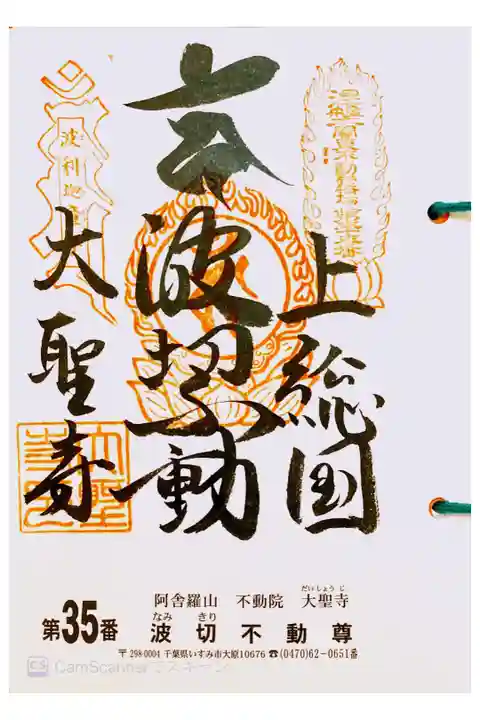 上総国
波切不動
大聖寺
だいしょうじ
阿舎羅山 不動院 大聖寺
なみ きり
第35番 波切不動尊
〒298-0004 千葉県いすみ市大原10676 ☎(0470)62-0651番
CS CamScannerでスキャン